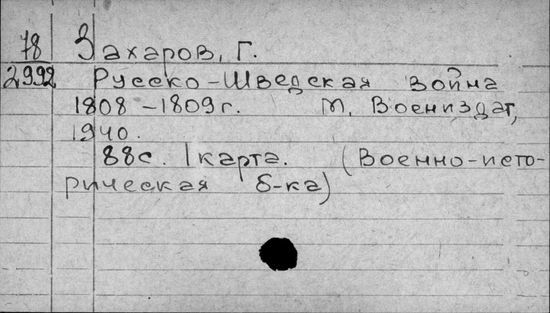 78 Захаров, Г.
2992 Русско-Шведская война
1808-1809г. М, Воениздат,
1940.
88с. 1 карта. (Военно-исто-
рическая б-ка)